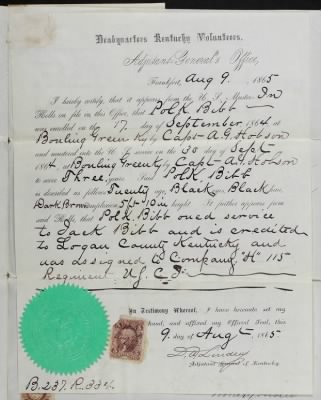 Headquarters Kentucky Volunteers.
Adjutant General's Office,
Frankfort, Aug 9. 1865
I hereby certify, that it appears from the U. S. Muster In
Rolls on file in this Office, that Polk Bibb
was enrolled on the 17 day of September 1864 at
Bowling Green Ky by Capt A. G. Hobson
and mustered into the U. S. service on the 30 day of Sept
1864 at Bowling Green Ky by Capt A. G. Hobson
to serve Three years. Said Polk Bibb
is described as follows Twenty age, Black eyes, Black hair,
Dark Brown complexion 5 ft 10 in height. It further appears from
said Rolls, that Polk Bibb owed service
to Jack Bibb and is credited
to Logan County Kentucky and
was assigned to Company "H" 115
Regiment U. S. C. I.
In Testimony Whereof, I have hereunto set my
hand, and affixed my Official Seal, this
9 day of Augt 1865
D. W. Lindsey
Adjutant General of Kentucky
B. 237. R.